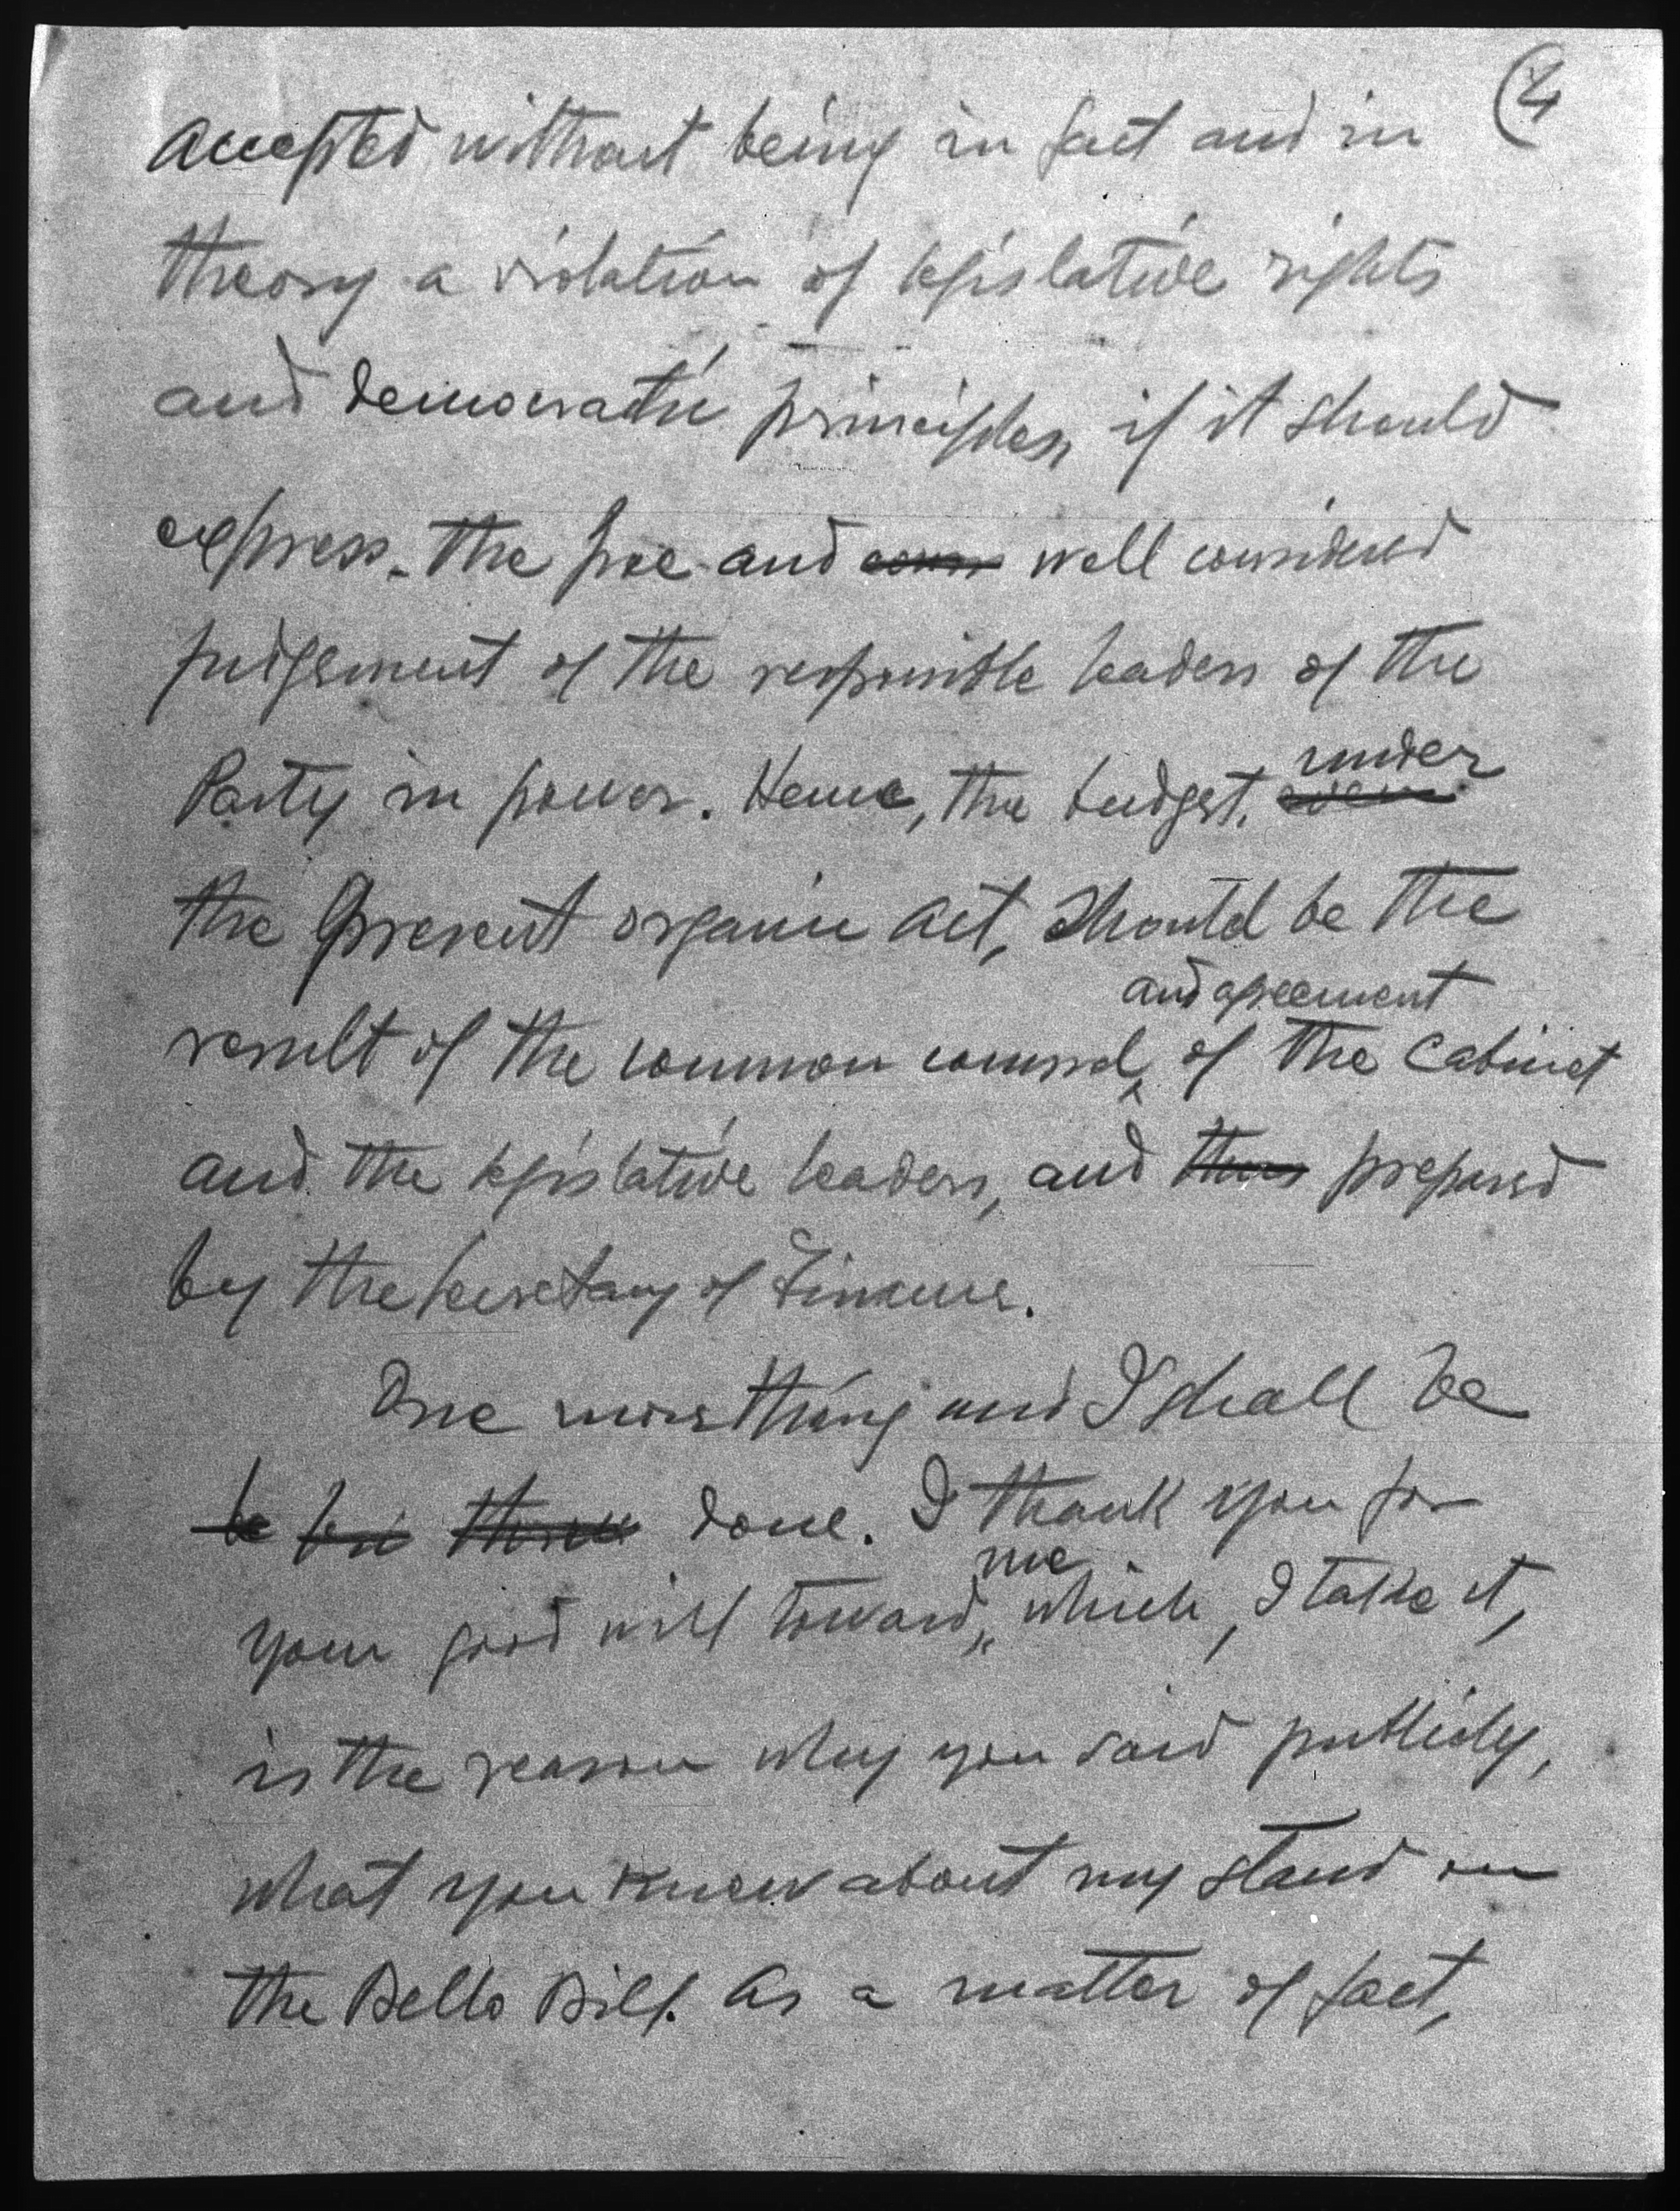 4
accepted without being in fact and in
theory a violation of legislative rights
and democratic principles, if it should
express the free and well considered
judgement of the responsible leaders of the
Party in power. Hence, the budget, under
the present organic act, should be the
and agreement
result of the common counsel of the Cabinet
and the legislative leaders, and thus prepared
by the Secretary of Finance.
One more thing and I shall be
be done. I thank you for
me
your good will toward, which, I take it,
is the reason why you said publicly,
what you knew about my stand on
the Bello Bill. As a matter of fact,